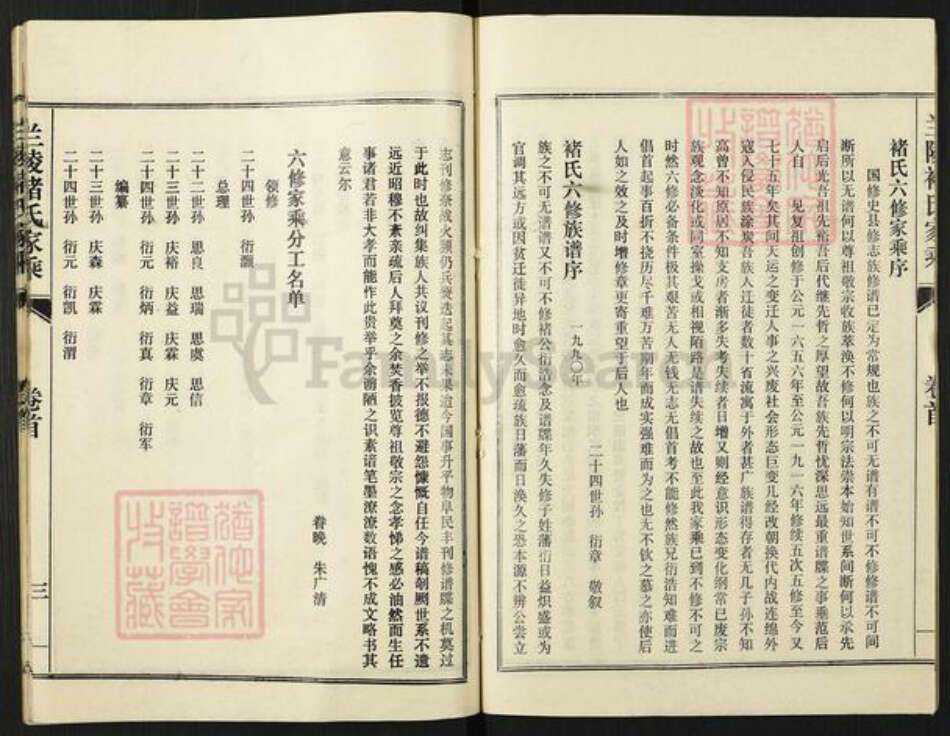 褚氏六修家乘序
国修史县修志族修谱已定为常规也族之不可无谱有谱不可不修修谱不可间
断所以无谱何以尊祖敬宗收族萃涣不修何以明宗法崇本始知世系间断何以承先
启后光吾祖先裕吾后代继先哲之厚望故吾族先哲忧深思远最重谱牒之事乘范后
人自 见复祖创修于公元一六五六年至公元一九一六年修续五次五修至今又
七十五年矣其间天运之变迁人事之兴废社会形态巨变几经改朝换代内战连绵外
寇入侵民族涂炭吾族人迁徒者数十省流寓于外者甚广族谱得存者无几子孙不知
高曾不知原居不知支房者渐多失考失续者日增又则经意识形态变化纲常已废宗
族观念淡化或同室操戈或相视陌路是谱失续之故也至此我家乘已到不修不可之
时然六修必备条件极其艰苦无人无钱无志无倡首考不能修然族兄衍浩知难而进
倡首起事百折不挠历尽千难万苦期年而成实强难而为之也无不钦之慕之亦使后
人如之效之及时增修章更寄重望于后人也
二十四世孙 衍章 敬叙
一九九〇年
褚氏六修族谱序
族之不可无谱谱又不可不修褚公衍浩念及谱牒年久失修子姓藩衍日益炽盛或为
官调其远方或因贫迁徒异地时愈久而愈疏族日藩而日涣久之恐本源不辨公尝立
志刊修奈战火频仍兵燹迭起其志未果迨今国事升平物阜民丰刊修谱牒之机莫过
于此时也故纠集族人共议刊修之举不报德不避怨慷慨自任今谱稿剞劂世系不遗
远近昭穆不紊亲疏后人拜奠之余焚香披览尊祖敬宗之念孝悌之感必油然而生任
事诸君若非大孝而能作此贵举乎余谫陋之识素谙笔墨潦潦数语愧不成文略书其
意云尔
眷晚 朱广清
六修家乘分工名单
领修
二十四世孙 衍灏
总理
二十二世孙 思良 思瑞 思虞 思信
二十三世孙 庆裕 庆益 庆霖 庆元
二十四世孙 衍元 衍炳 衍真 衍章 衍军
编纂
二十三世孙 庆森 庆霖
二十四世孙 衍元 衍凯 衍渭
兰陵褚氏家乘 卷首
三
兰陵褚氏家乘 卷首
FamilySearch